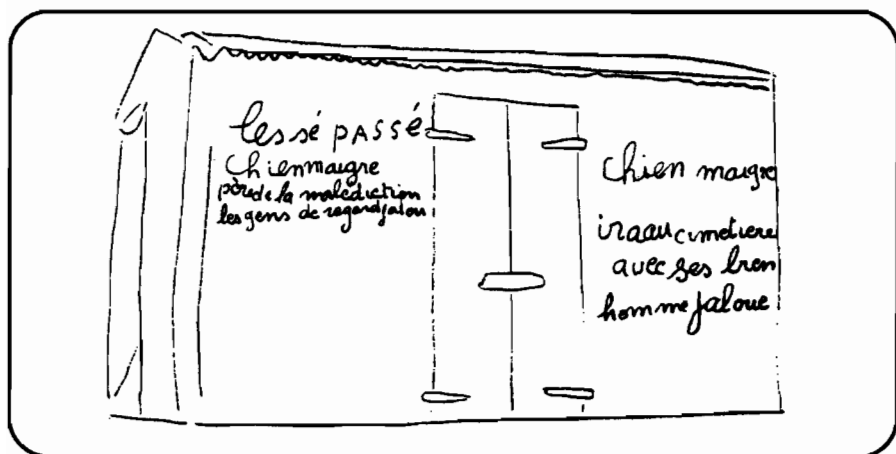 les sé PASSÉ
chien maigre
père de la malediction
les gens de regard jalou
chien maigre
ira au cimetiere
avec ses bien
homme jaloue